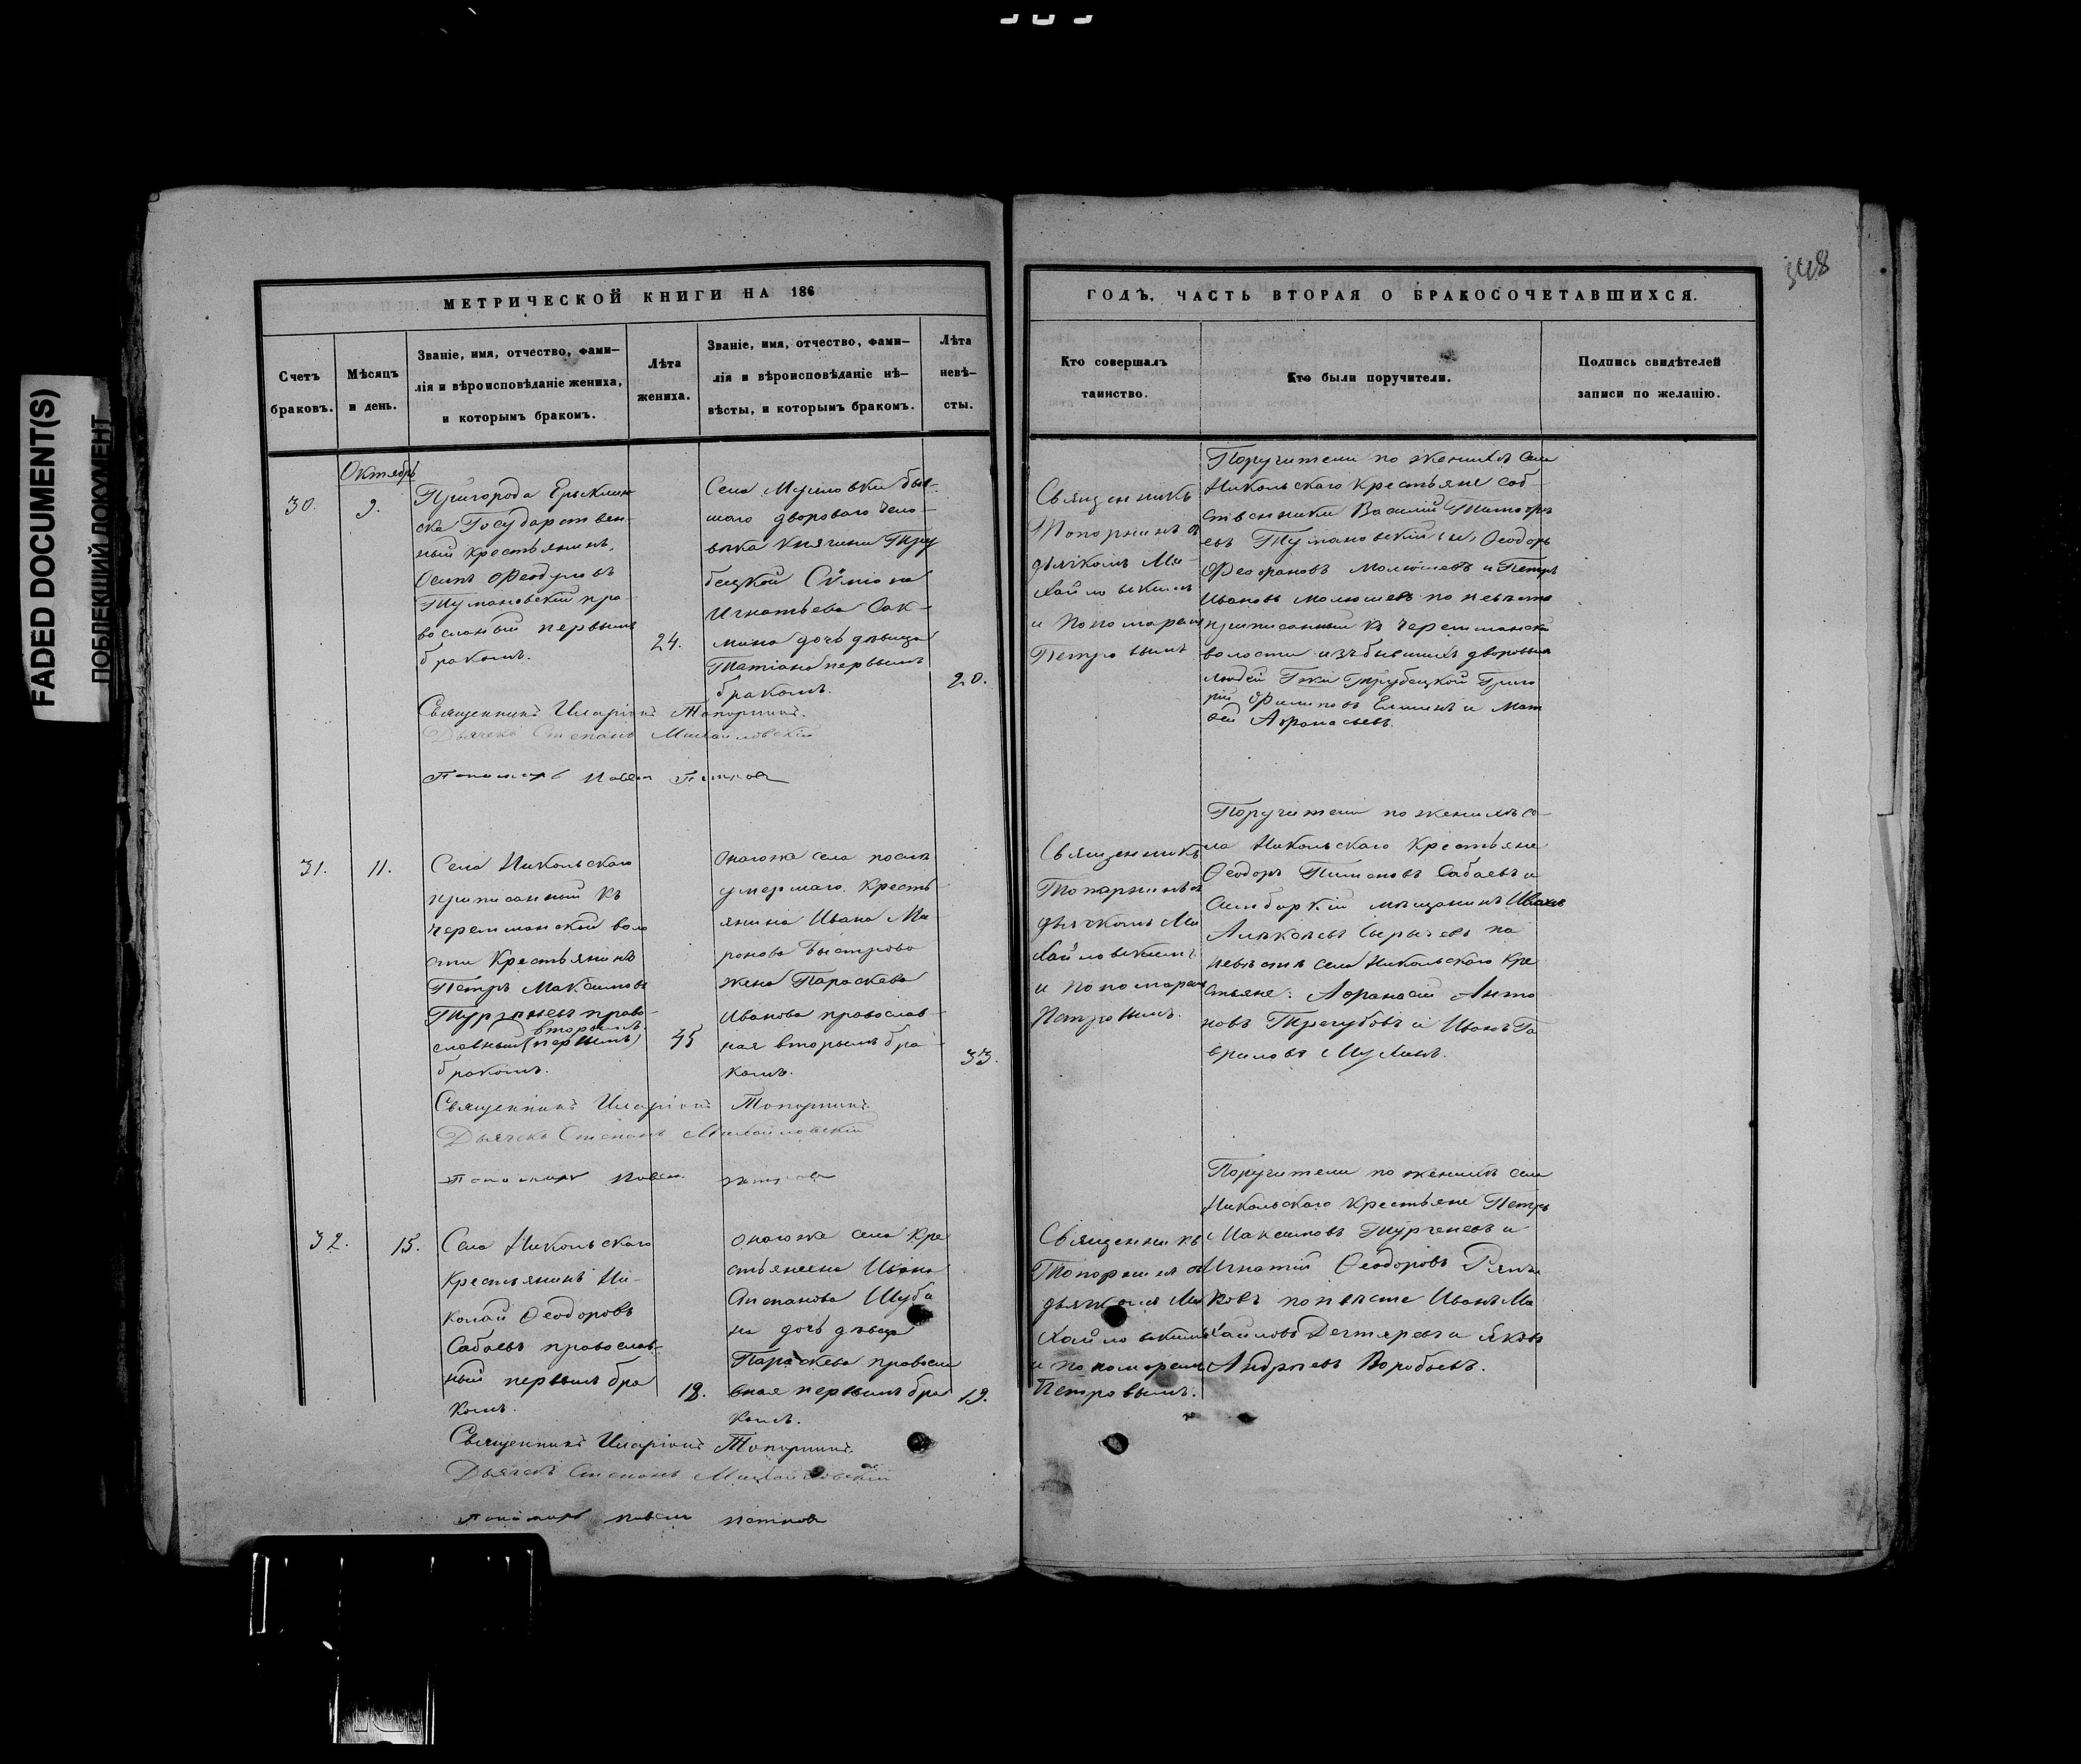 FADED DOCUMENT(S)
ПОБЛЕКШИЙ ДОКУМЕНТ
МЕТРИЧЕСКОЙ КНИГИ НА 186
Счетъ
браковъ.
Мѣсяцъ
и день.
Званіе, имя, отчество, фами-
лія и вѣроисповѣданіе жениха,
и которымъ бракомъ.
Лѣта
жениха.
Званіе, имя, отчество, фами-
лія и вѣроисповѣданіе не-
вѣсты, и которымъ бракомъ.
Лѣта
невѣ-
сты.
Октябрь
30.
9.
Пригорода Ерыклин
ска Государствен-
ный крестьянинъ,
Осипъ Феодуловъ
Тумановскій пра-
вославный первымъ
бракомъ.
24.
Села Мусловки быв-
шаго двороваго чело-
вѣка княгини Тру
бецкой Сѵмiона
Игнатьева Сак-
мина дочь дѣвица
Татіана первымъ
бракомъ.
20.
Священникъ Иларіонъ Топорнинъ.
Дьячекъ Степанъ Михайловскій
Пономарь Павелъ Петровъ
31.
11.
Села Никольскаго
приписанный къ
Черемшанской воло
сти Крестьянинъ
Петръ Максимовъ
Тургеневъ право-
вторымъ
славный (первымъ)
бракомъ.
45
Онагоже села послѣ
умершаго Кресть
янина Ивана Ма
ронова Быстрова
жена Параскева
Иванова православ-
ная вторымъ бра
комъ.
33.
Священникъ Иларіонъ Топорнинъ.
Дьячекъ Степанъ Михайловскій
Пономарь Павелъ Петровъ
32.
15.
Села Никольскаго
Крестьянинъ Ни-
колай Ѳеодоровъ
Сабаевъ православ-
ный первымъ бра
комъ.
18.
Онагоже села Кре
стьянина Ивана
Степанова Шуби
на дочь дѣвица
Параскева правосла
вная первымъ бра
комъ.
19.
Священникъ Иларіонъ Топорнинъ.
Дьячекъ Степанъ Михайловскій
Пономарь Павелъ Петровъ
348
ГОДЪ, ЧАСТЬ ВТОРАЯ О БРАКОСОЧЕТАВШИХСЯ.
Кто совершалъ
таинство.
Кто были поручители.
Подпись свидѣтелей
записи по желанію.
Священникъ
Топорнинъ съ
дьячкомъ Ми
хайловскимъ
и Пономаремъ
Петровымъ
Поручители по женихѣ села
Никольскаго крестьяне соб-
ственники Василій
евъ Тумановскій и Ѳеодоръ
Феофановъ Малюшевъ и Петръ
Ивановъ Малюшевъ по невѣстѣ
приписанный къ Черемшанской
волости изъ бывшихъ дворовыхъ
людей Г-жи Трубецкой Григо
рій Филиповъ и Мат
вей Афонасьевъ
Священникъ
Топорнинъ съ
дьячкомъ Ми
хайловскимъ
и пономаремъ
Петровымъ.
Поручители по женихѣ се-
ла Никольскаго Крестьяне
Ѳеодоръ Пименовъ Сабаевъ и
Симбирскій мѣщанинъ Иванъ
Алексѣевъ Сырычевъ по
невѣстѣ села Никольскаго Кре
стьяне: Афанасій Анто
новъ Трегубовъ и Иванъ Га
вриловъ Мухинъ.
Священникъ
Топорнинъ съ
дьячкомъ Ми
хайловскимъ
и пономаремъ
Петровымъ.
Поручители по женихѣ села
Никольскаго Крестьяне Петръ
Максимовъ Тургеневъ и
Игнатій Ѳеодоровъ Рѣпь
ковъ по невѣсте Иванъ Ми
хайловъ Дегтяревъ и Яковъ
Андреевъ Воробьевъ.